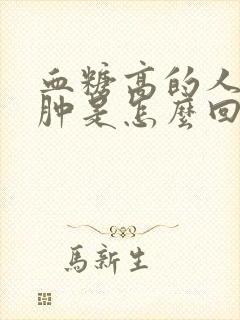 血糖高的人
肿是怎麽回
馬新生